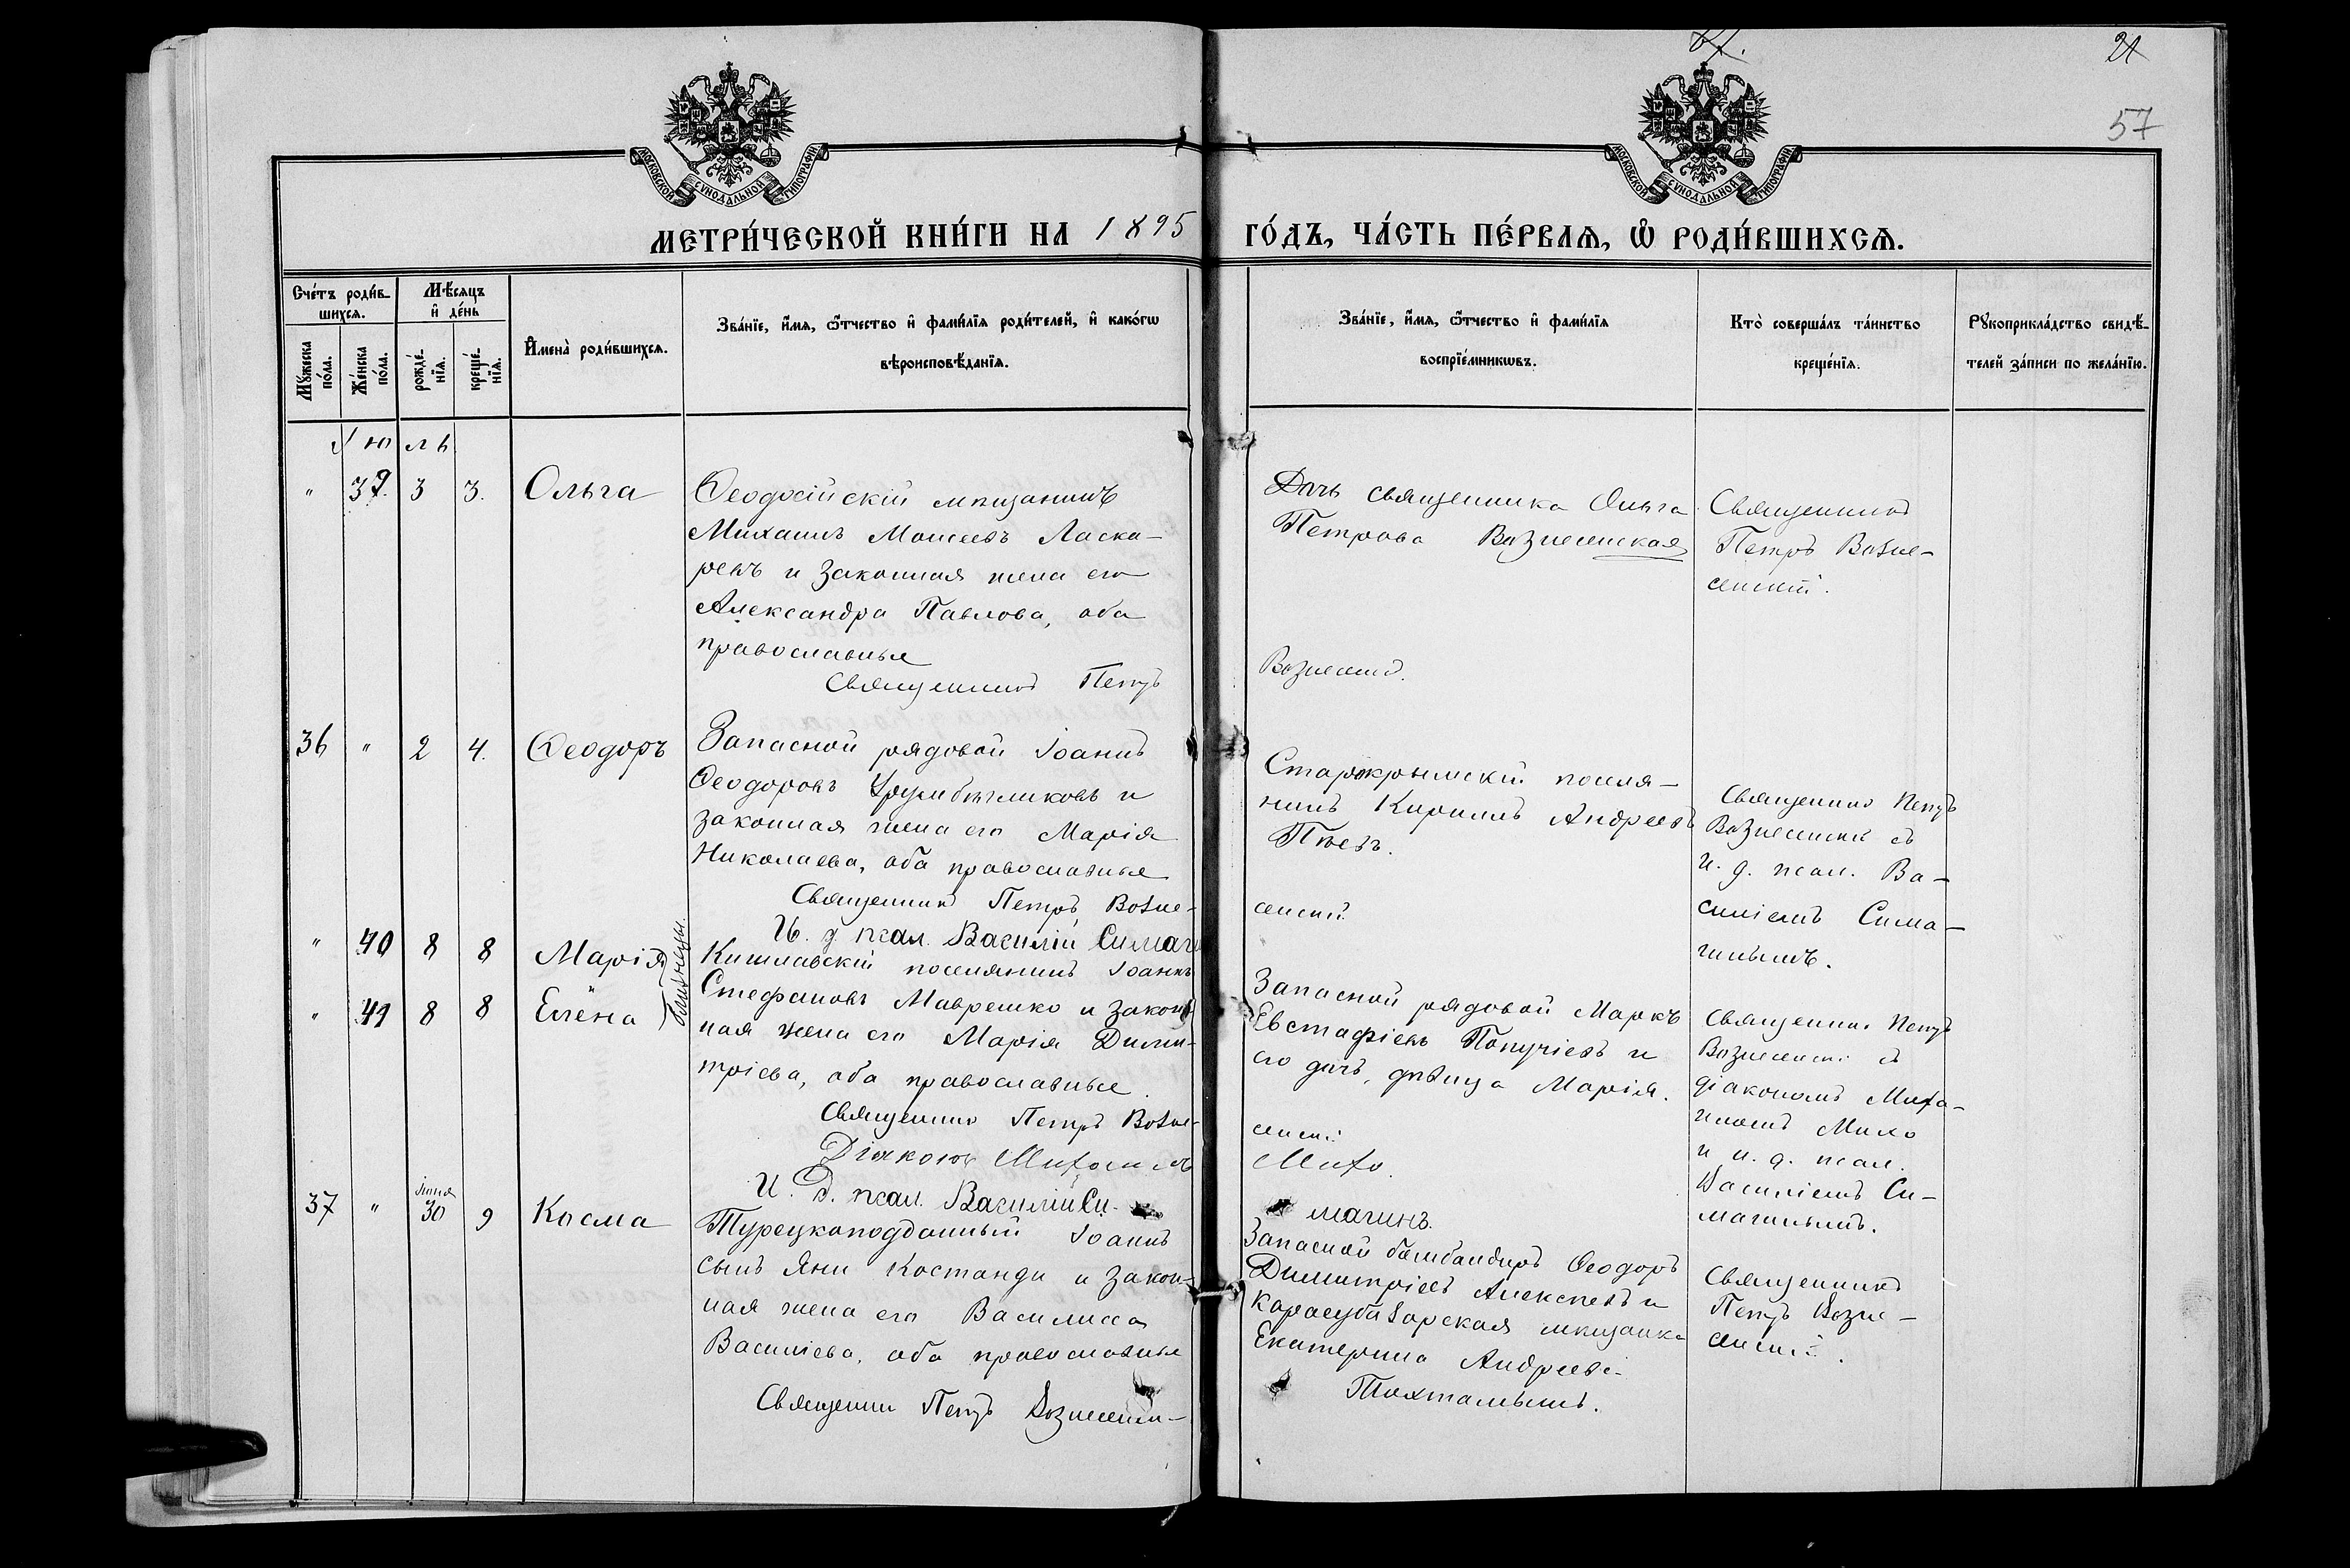 57
МОСКОВСКОЙ СѴНОДАЛЬНОЙ ТИПОГРАФІИ
МОСКОВСКОЙ СѴНОДАЛЬНОЙ ТИПОГРАФІИ
МЕТРИ́ЧЕСКОЙ КНИ́ГИ НА 1895 ГО́ДЪ, ЧА́СТЬ ПЕ́РВАѦ, Ѡ РОДИ́ВШИХСѦ.
Сче́тъ роди́в-
шихсѧ.
Мꙋ́жеска по́ла.
Же́нска по́ла.
Мѣ́сѧцъ
и҆ де́нь
рожде́-
нїѧ.
креще́-
нїѧ.
И҆мена̀ роди́вшихсѧ.
Зва́нїе, и҆́мѧ, ѻ҆́тчество и҆ фами́лїѧ роди́телей, и҆ како́гѡ
вѣроисповѣ́данїѧ.
Зва́нїе, и҆́мѧ, ѻ҆́тчество и҆ фами́лїѧ
воспрїе́мникѡвъ.
Кто̀ соверша́лъ та́инство
креще́нїѧ.
Рꙋкоприкла́дство свидѣ́-
телей за́писи по жела́нїю.
Іюль
" 39. 3 3. Ольга
Ѳеодосійскій мѣщанинъ
Михаилъ Моисеевъ Ласка-
ревъ и законная жена его
Александра Павлова, оба
православные
Священникъ Петръ
Дочь священника Ольга
Петрова Вознесенская
Вознесенск.
Священникъ
Петръ Возне-
сенскій.
36 " 2 4. Ѳеодоръ
Запасной рядовой Іоаннъ
Ѳеодоровъ и
законная жена его Марія
Николаева, оба православные
Священникъ Петръ Возне-
И. д. псал. Василій Симаги
Старокрымскій поселя-
нинъ Кириллъ Андреевъ
сенскій
Священник Петръ
Вознесенскій съ
и. д. псал. Ва-
силіемъ Сима-
гинымъ.
" 40 8 8 Марія
" 41 8 8 Елена
близнецы.
Кишлавскій поселянинъ Іоаннъ
Стефановъ Маврешко и закон
ная жена его Марія Дими-
тріева, оба православные
Священник Петръ Возне-
Діаконъ Михаилъ
И. Д. псал. Василій Си-
Запасной рядовой Маркъ
Евстафіевъ Попучіевъ и
его дочь, дѣвица Марія.
сенскій
магинъ.
Священник Петръ
Вознесенскі съ
діакономъ Миха-
иломъ
и и. д. псал.
Василіемъ Си-
магинымъ.
37 " іюня 30 9 Косма
Турецкоподданный Іоаннъ
сынъ Яни Костанди и закон-
ная жена его Василисса
Василіева, оба православные
Священник Петръ Вознесен-
Запасной бомбандиръ Ѳеодоръ
Димитріевъ Алексѣевъ и
карасубазарская мѣщанка
Екатерина Андреева
Тохтамышъ.
Священникъ
Петръ Возне-
сенскій.